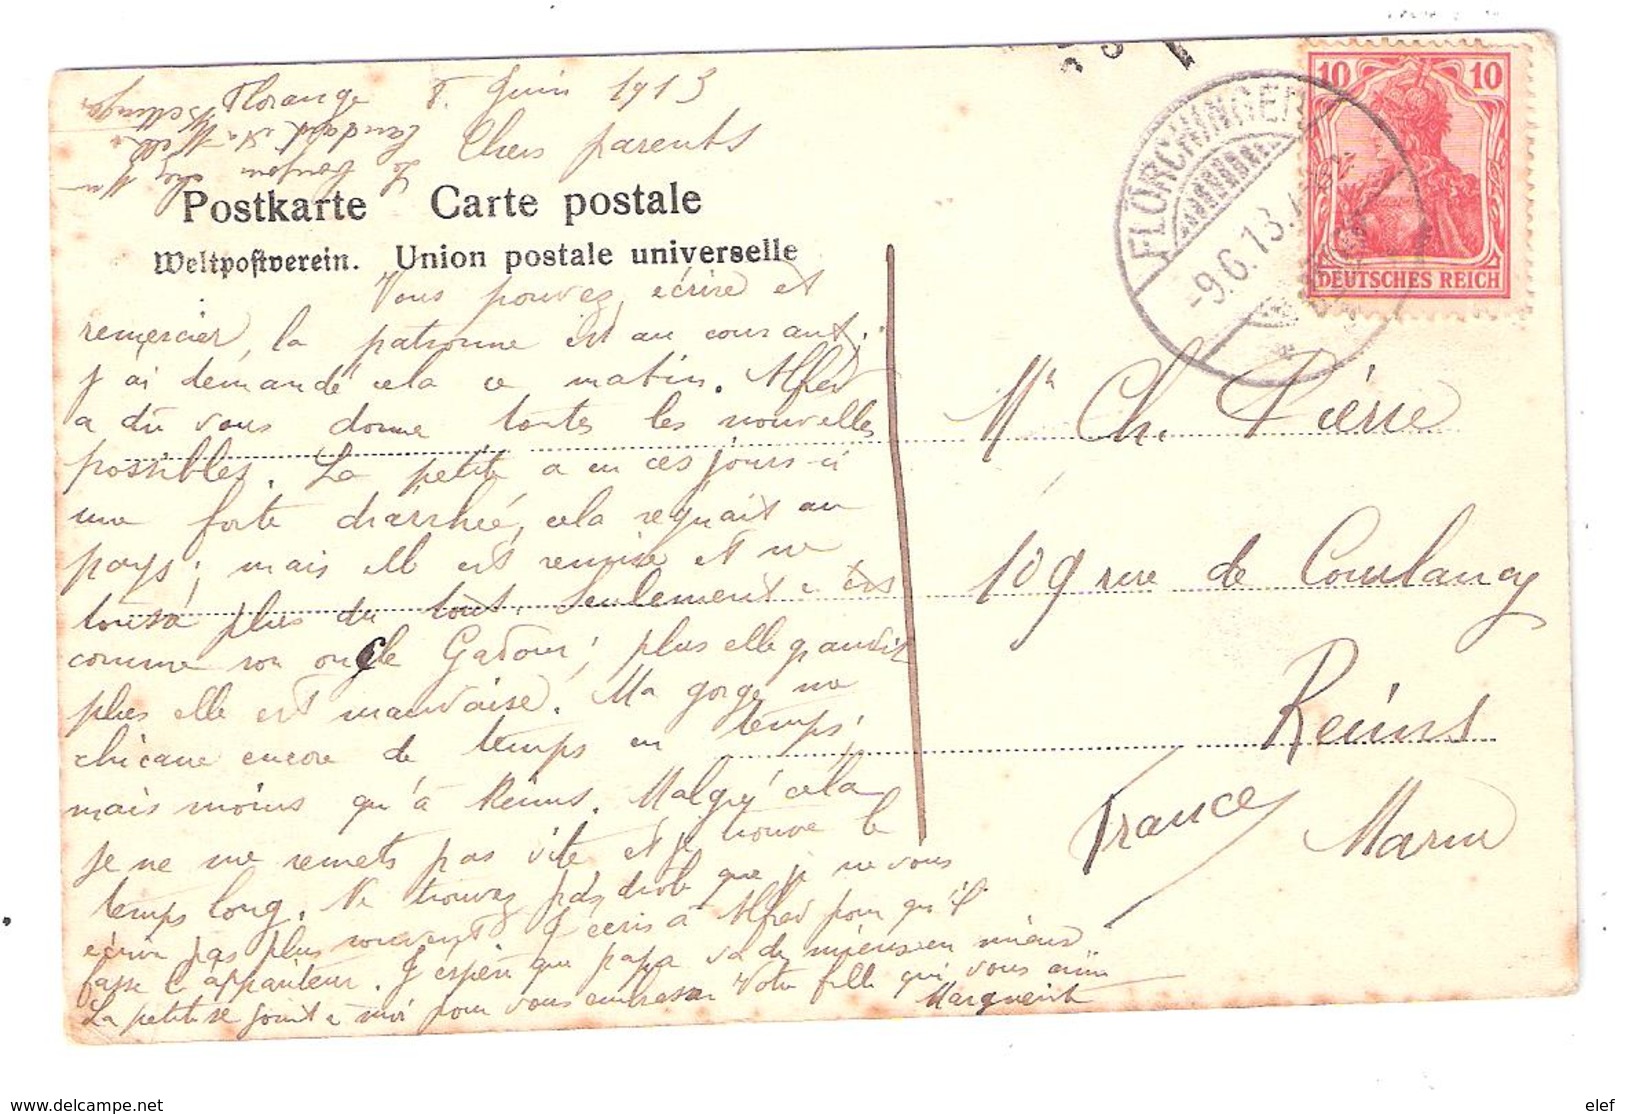 Florange 8. Juin 1913
Chers parents
Postkarte Carte postale
Weltpostverein. Union postale universelle
Vous pouvez écrire et
remercier, la patronne est au courant.
j'ai demandé cela ce matin. Alfred
a dû vous donne toutes les nouvelles
possibles. La petite a eu ces jours-ci
une forte diarrhée, cela régnait au
pays; mais elle est remise et ne
tousse plus du tout. Seulement
comme son oncle Gadour; plus elle grandit
plus elle est mauvaise. Ma gorge me
chicane encore de temps en temps;
mais moins qu'à Reims. Malgré cela
je ne me remets pas vite et je trouve le
temps long. Ne trouvez pas drole que je ne vous
écrive pas plus souvent J'écris à Alfred pour qu'il
fasse l'appariteur. J'espère que papa va de mieux en mieux.
La petite se joint à moi pour vous embrasser Votre fille qui vous aime
Marguerite
FLÖRCHINGEN
-9.6.13.
10 10
DEUTSCHES REICH
Mr Ch. Pierre
109 rue de Courlancy
Reims
Marne
France
delcampe.net
elef